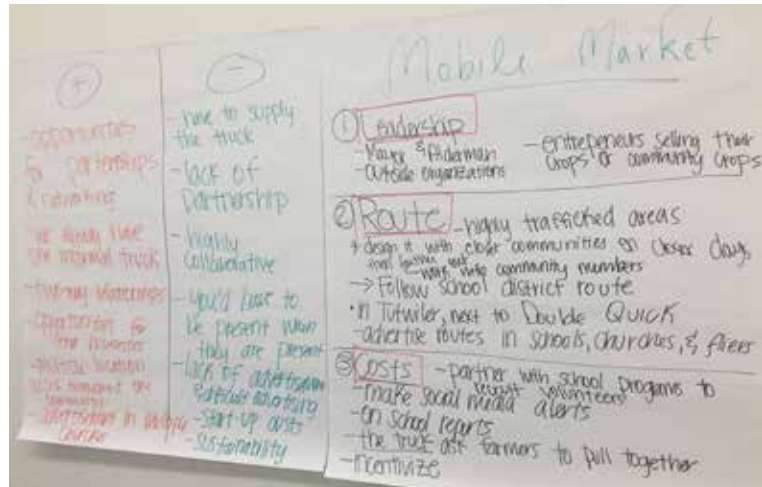 +
- opportunities
for partnerships
& networking
truck
- two way relationships
- opportunities for
location
- advertisement in
churches
-
- have to supply
the truck
- lack of
partnership
- highly
collaborative
- you'd have to
be present when
they are present
- lack of advertisement
difficult advertising
- start-up costs
- sustainability
Mobile Market
① Leadership
- Mayor & Alderman
- outside organizations
- entrepeneurs selling their
crops or community crops
② Route - highly trafficked areas
+ design it with closer communities on closer days,
work with community members
→ Follow school district route
• in Tutwiler, next to Double Quick
- advertise routes in schools, churches, & fliers
③ Costs - partner with school programs to
recruit volunteers
- make social media alerts
- on school reports
- the truck ask farmers to pull together
- incentivize